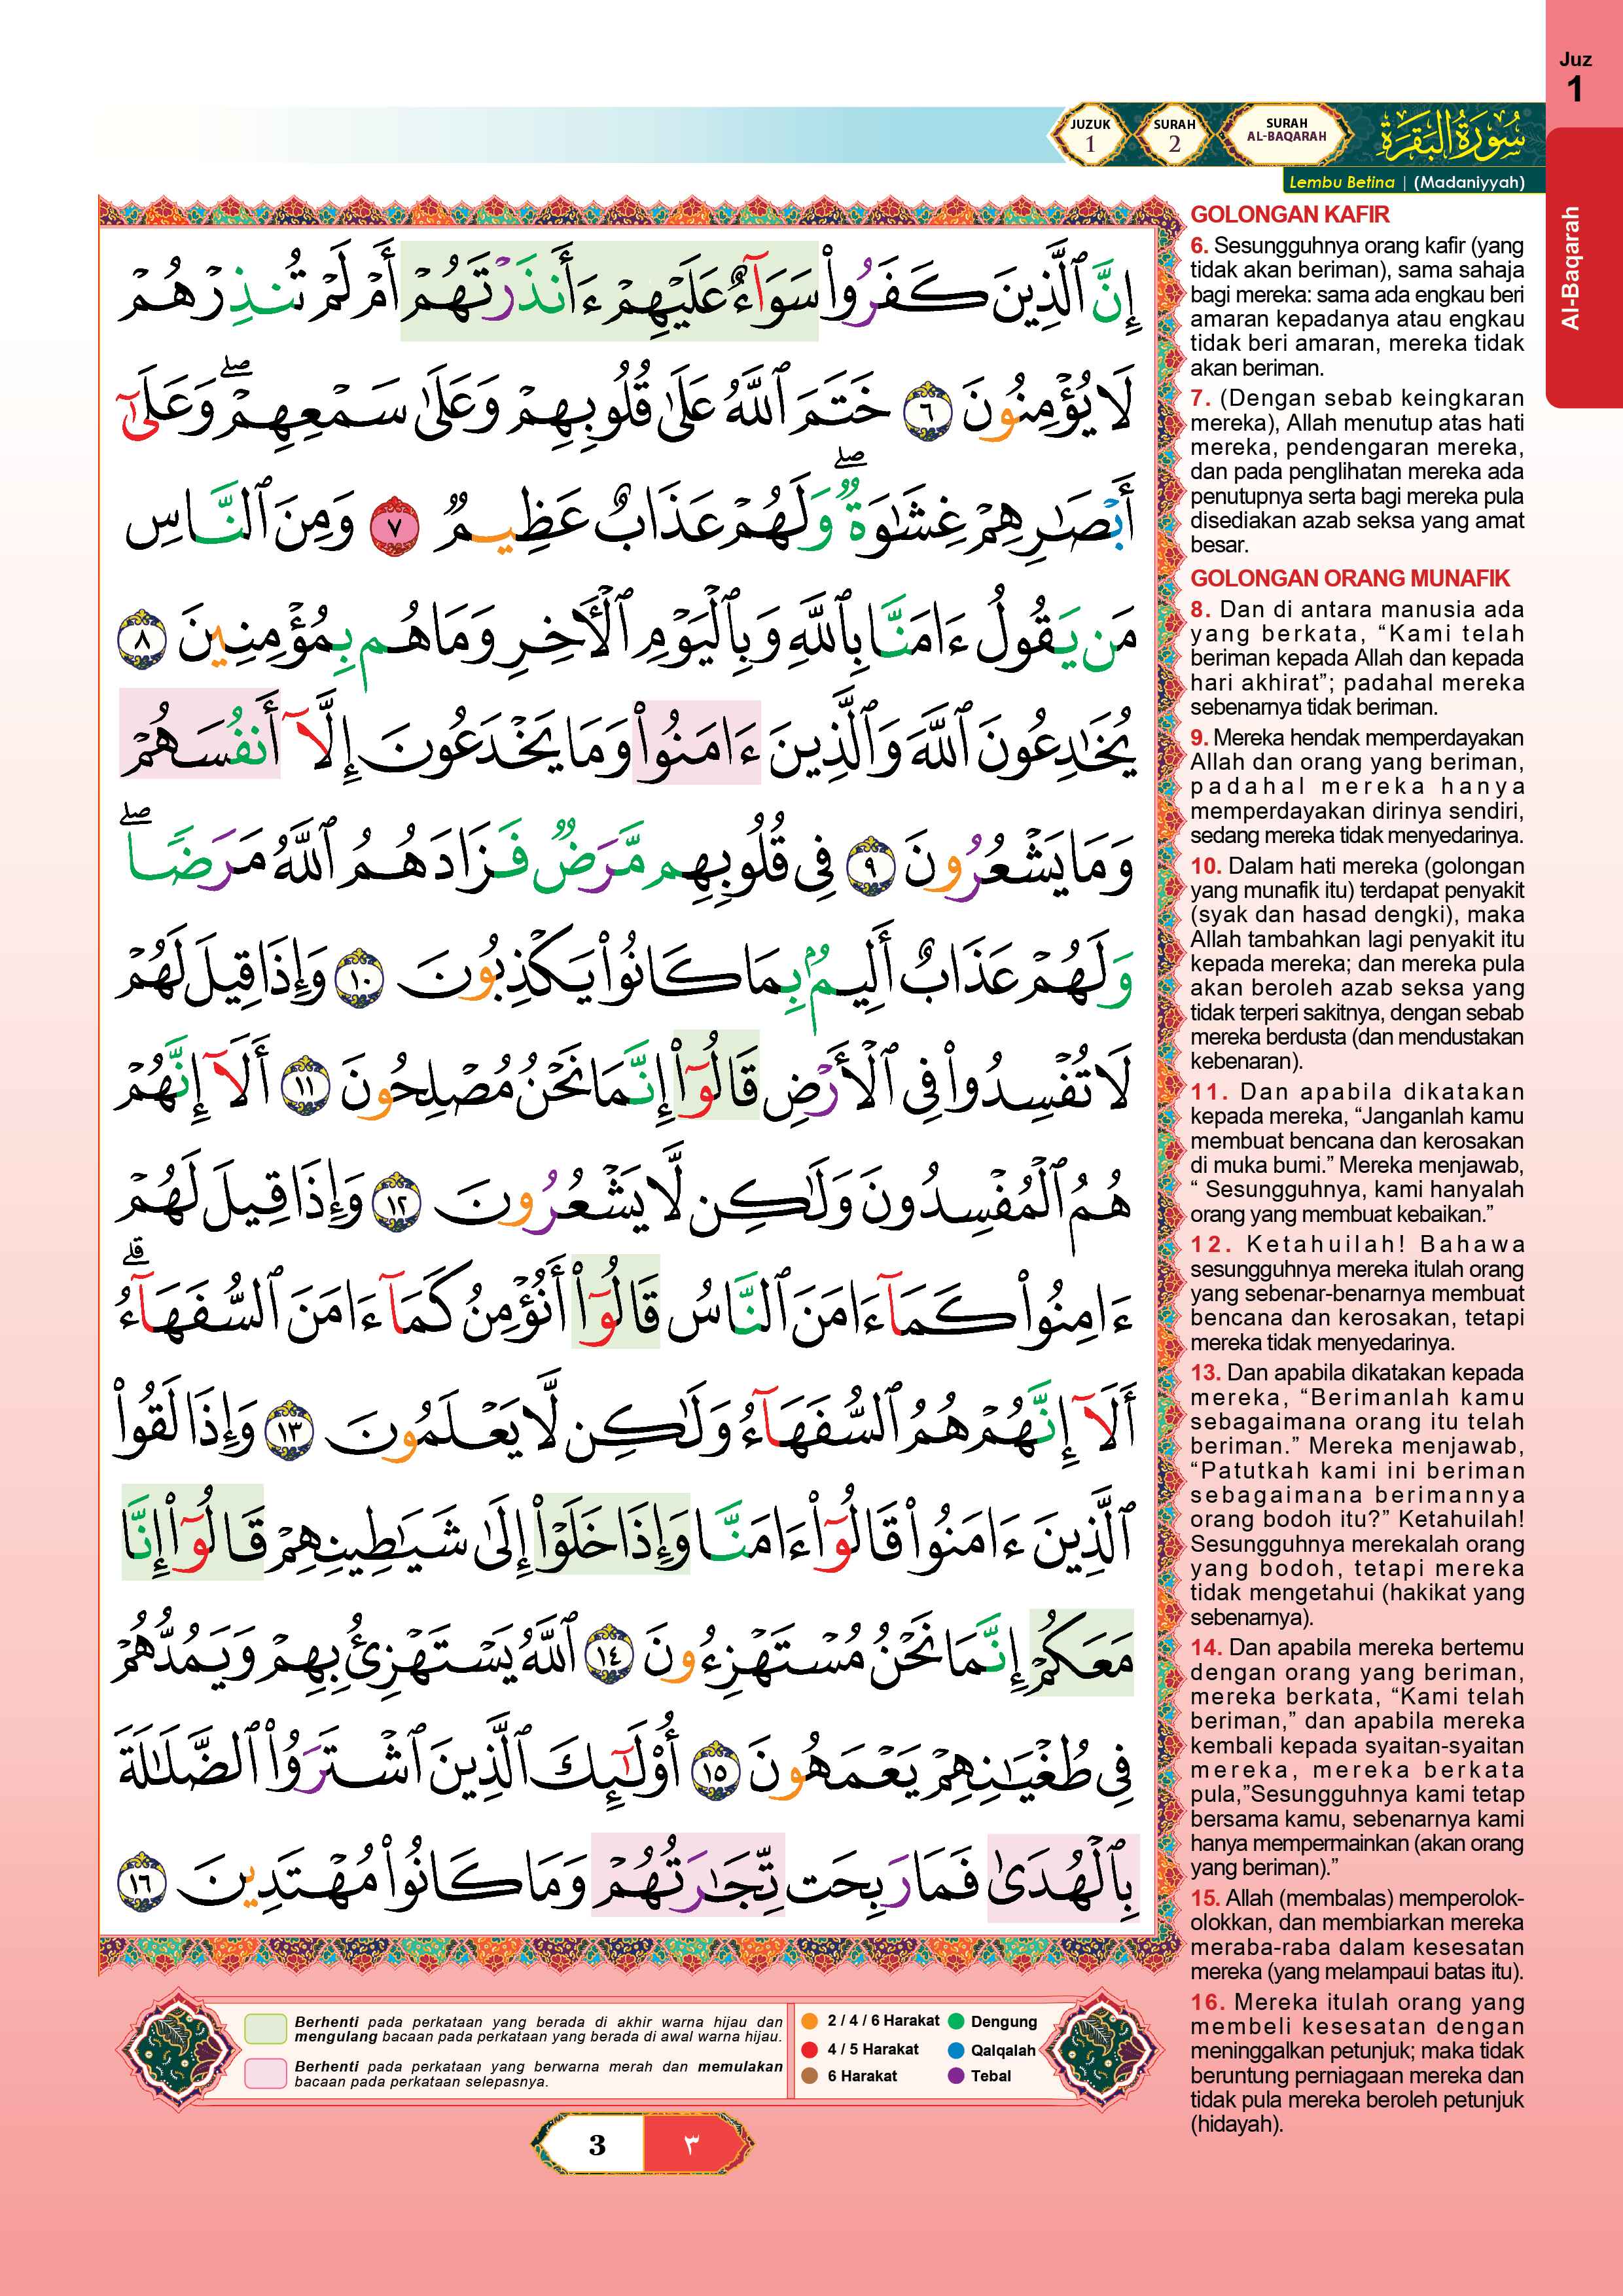 Juz
1
Al-Baqarah
JUZUK
1
SURAH
2
SURAH
AL-BAQARAH
سُورَةُ البَقَرَة
Lembu Betina | (Madaniyyah)
إِنَّ ٱلَّذِينَ كَفَرُوا۟ سَوَآءٌ عَلَيْهِمْ ءَأَنذَرْتَهُمْ أَمْ لَمْ تُنذِرْهُمْ
لَا يُؤْمِنُونَ ٦ خَتَمَ ٱللَّهُ عَلَىٰ قُلُوبِهِمْ وَعَلَىٰ سَمْعِهِمْ ۖ وَعَلَىٰٓ
أَبْصَـٰرِهِمْ غِشَـٰوَةٌ ۖ وَلَهُمْ عَذَابٌ عَظِيمٌ ٧ وَمِنَ ٱلنَّاسِ
مَن يَقُولُ ءَامَنَّا بِٱللَّهِ وَبِٱلْيَوْمِ ٱلْـَٔاخِرِ وَمَا هُم بِمُؤْمِنِينَ ٨
يُخَـٰدِعُونَ ٱللَّهَ وَٱلَّذِينَ ءَامَنُوا۟ وَمَا يَخْدَعُونَ إِلَّآ أَنفُسَهُمْ
وَمَا يَشْعُرُونَ ٩ فِى قُلُوبِهِم مَّرَضٌ فَزَادَهُمُ ٱللَّهُ مَرَضًا ۖ
وَلَهُمْ عَذَابٌ أَلِيمٌۢ بِمَا كَانُوا۟ يَكْذِبُونَ ١٠ وَإِذَا قِيلَ لَهُمْ
لَا تُفْسِدُوا۟ فِى ٱلْأَرْضِ قَالُوٓا۟ إِنَّمَا نَحْنُ مُصْلِحُونَ ١١ أَلَآ إِنَّهُمْ
هُمُ ٱلْمُفْسِدُونَ وَلَـٰكِن لَّا يَشْعُرُونَ ١٢ وَإِذَا قِيلَ لَهُمْ
ءَامِنُوا۟ كَمَآ ءَامَنَ ٱلنَّاسُ قَالُوٓا۟ أَنُؤْمِنُ كَمَآ ءَامَنَ ٱلسُّفَهَآءُ ۗ
أَلَآ إِنَّهُمْ هُمُ ٱلسُّفَهَآءُ وَلَـٰكِن لَّا يَعْلَمُونَ ١٣ وَإِذَا لَقُوا۟
ٱلَّذِينَ ءَامَنُوا۟ قَالُوٓا۟ ءَامَنَّا وَإِذَا خَلَوْا۟ إِلَىٰ شَيَـٰطِينِهِمْ قَالُوٓا۟ إِنَّا
مَعَكُمْ إِنَّمَا نَحْنُ مُسْتَهْزِءُونَ ١٤ ٱللَّهُ يَسْتَهْزِئُ بِهِمْ وَيَمُدُّهُمْ
فِى طُغْيَـٰنِهِمْ يَعْمَهُونَ ١٥ أُو۟لَـٰٓئِكَ ٱلَّذِينَ ٱشْتَرَوُا۟ ٱلضَّلَـٰلَةَ
بِٱلْهُدَىٰ فَمَا رَبِحَت تِّجَـٰرَتُهُمْ وَمَا كَانُوا۟ مُهْتَدِينَ ١٦
GOLONGAN KAFIR
6. Sesungguhnya orang kafir (yang
tidak akan beriman), sama sahaja
bagi mereka: sama ada engkau beri
amaran kepadanya atau engkau
tidak beri amaran, mereka tidak
akan beriman.
7. (Dengan sebab keingkaran
mereka), Allah menutup atas hati
mereka, pendengaran mereka,
dan pada penglihatan mereka ada
penutupnya serta bagi mereka pula
disediakan azab seksa yang amat
besar.
GOLONGAN ORANG MUNAFIK
8. Dan di antara manusia ada
yang berkata, “Kami telah
beriman kepada Allah dan kepada
hari akhirat”; padahal mereka
sebenarnya tidak beriman.
9. Mereka hendak memperdayakan
Allah dan orang yang beriman,
padahal mereka hanya
memperdayakan dirinya sendiri,
sedang mereka tidak menyedarinya.
10. Dalam hati mereka (golongan
yang munafik itu) terdapat penyakit
(syak dan hasad dengki), maka
Allah tambahkan lagi penyakit itu
kepada mereka; dan mereka pula
akan beroleh azab seksa yang
tidak terperi sakitnya, dengan sebab
mereka berdusta (dan mendustakan
kebenaran).
11. Dan apabila dikatakan
kepada mereka, “Janganlah kamu
membuat bencana dan kerosakan
di muka bumi.” Mereka menjawab,
“ Sesungguhnya, kami hanyalah
orang yang membuat kebaikan.”
12. Ketahuilah! Bahawa
sesungguhnya mereka itulah orang
yang sebenar-benarnya membuat
bencana dan kerosakan, tetapi
mereka tidak menyedarinya.
13. Dan apabila dikatakan kepada
mereka, “Berimanlah kamu
sebagaimana orang itu telah
beriman.” Mereka menjawab,
“Patutkah kami ini beriman
sebagaimana berimannya
orang bodoh itu?” Ketahuilah!
Sesungguhnya merekalah orang
yang bodoh, tetapi mereka
tidak mengetahui (hakikat yang
sebenarnya).
14. Dan apabila mereka bertemu
dengan orang yang beriman,
mereka berkata, “Kami telah
beriman,” dan apabila mereka
kembali kepada syaitan-syaitan
mereka, mereka berkata
pula,”Sesungguhnya kami tetap
bersama kamu, sebenarnya kami
hanya mempermainkan (akan orang
yang beriman).”
15. Allah (membalas) memperolok-
olokkan, dan membiarkan mereka
meraba-raba dalam kesesatan
mereka (yang melampaui batas itu).
16. Mereka itulah orang yang
membeli kesesatan dengan
meninggalkan petunjuk; maka tidak
beruntung perniagaan mereka dan
tidak pula mereka beroleh petunjuk
(hidayah).
Berhenti pada perkataan yang berada di akhir warna hijau dan
mengulang bacaan pada perkataan yang berada di awal warna hijau.
Berhenti pada perkataan yang berwarna merah dan memulakan
bacaan pada perkataan selepasnya.
2 / 4 / 6 Harakat
4 / 5 Harakat
6 Harakat
Dengung
Qalqalah
Tebal
3
٣